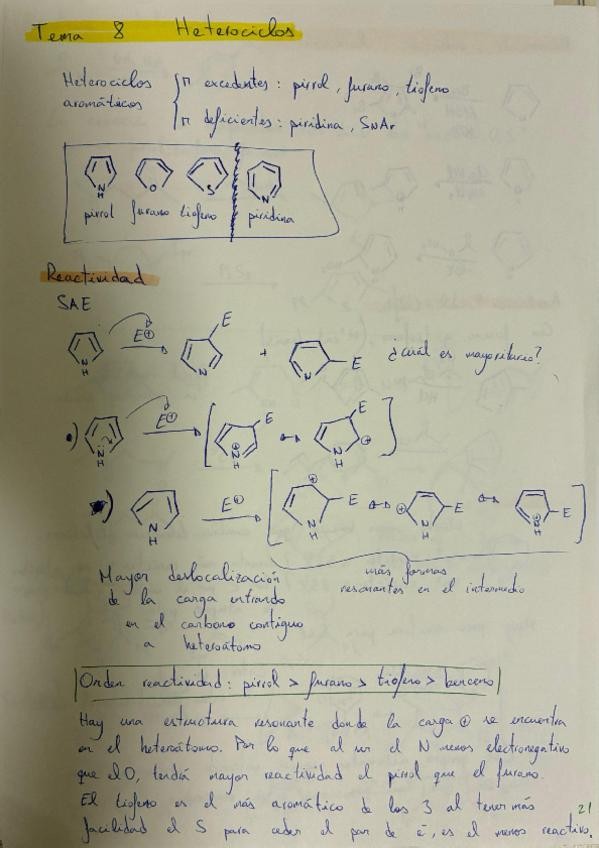 Tema 8 Heterociclos
Heterociclos aromáticos
π excedentes: pirrol, furano, tiofeno
π deficientes: piridina, SNAr
N H O S N
pirrol furano tiofeno piridina
Reactividad
SAE
N H E⊕ E N + N E ¿cuál es mayoritario?
•) N H E⊕ [ ⊕ N H E ↔ N H E ⊕ ]
) N H E⊕ [ ⊕ N H E ↔ ⊕ N H E ↔ ⊕ N H E ]
Mayor deslocalización
de la carga entrando
en el carbono contiguo
a heteroátomo
más formas
resonantes en el intermedio
Orden reactividad: pirrol > furano > tiofeno > benceno
Hay una estructura resonante donde la carga ⊕ se encuentra
en el heteroátomo. Por lo que al ser el N menos electronegativo
que el O, tendrá mayor reactividad el pirrol que el furano.
El tiofeno es el más aromático de los 3 al tener más
facilidad el S para ceder el par de e⁻, es el menos reactivo.
21